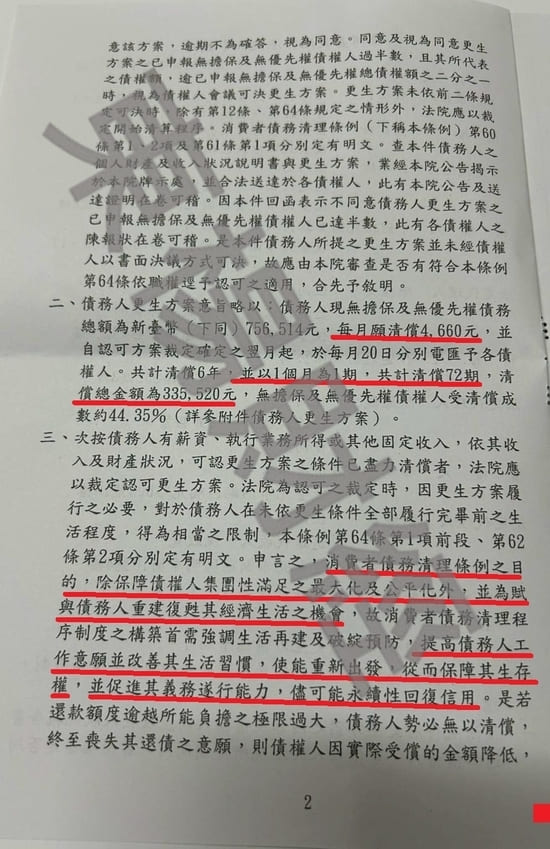 意該方案，逾期不為確答，視為同意。同意及視為同意更生
方案之已申報無擔保及無優先權債權人過半數，且其所代表
之債權額，逾已申報無擔保及無優先權總債權額之二分之一
時，視為債權人會議可決更生方案。更生方案未依前二條規
定可決時，除有第12條、第64條規定之情形外，法院應以裁
定開始清算程序。消費者債務清理條例（下稱本條例）第60
條第1、2項及第61條第1項分別定有明文。查本件債務人之
個人財產及收入狀況說明書與更生方案，業經本院公告揭示
於本院牌示處，並合法送達於各債權人，此有本院公告及送
達證明在卷可稽。因本件回函表示不同意債務人更生方案之
已申報無擔保及無優先權債權人已達半數，此有各債權人之
陳報狀在卷可稽。是本件債務人所提之更生方案並未經債權
人以書面決議方式可決，故應由本院審查是否有符合本條例
第64條依職權逕予認可之適用，合先予敘明。
二、債務人更生方案意旨略以：債務人現無擔保及無優先權債務
總額為新臺幣（下同）756,514元，每月願清償4,660元，並
自認可方案裁定確定之翌月起，於每月20日分別電匯予各債
權人。共計清償6年，並以1個月為1期，共計清償72期，清
償總金額為335,520元，無擔保及無優先權債權人受清償成
數約44.35%（詳參附件債務人更生方案）。
三、次按債務人有薪資、執行業務所得或其他固定收入，依其收
入及財產狀況，可認更生方案之條件已盡力清償者，法院應
以裁定認可更生方案。法院為認可之裁定時，因更生方案履
行之必要，對於債務人在未依更生條件全部履行完畢前之生
活程度，得為相當之限制，本條例第64條第1項前段、第62
條第2項分別定有明文。申言之，消費者債務清理條例之目
的，除保障債權人集團性滿足之最大化及公平化外，並為賦
與債務人重建復甦其經濟生活之機會，故消費者債務清理程
序制度之構築首需強調生活再建及破綻預防，提高債務人工
作意願並改善其生活習慣，使能重新出發，從而保障其生存
權，並促進其義務遂行能力，儘可能永續性回復信用。是若
還款額度逾越所能負擔之極限過大，債務人勢必無以清償，
終至喪失其還債之意願，則債權人因實際受償的金額降低，
2